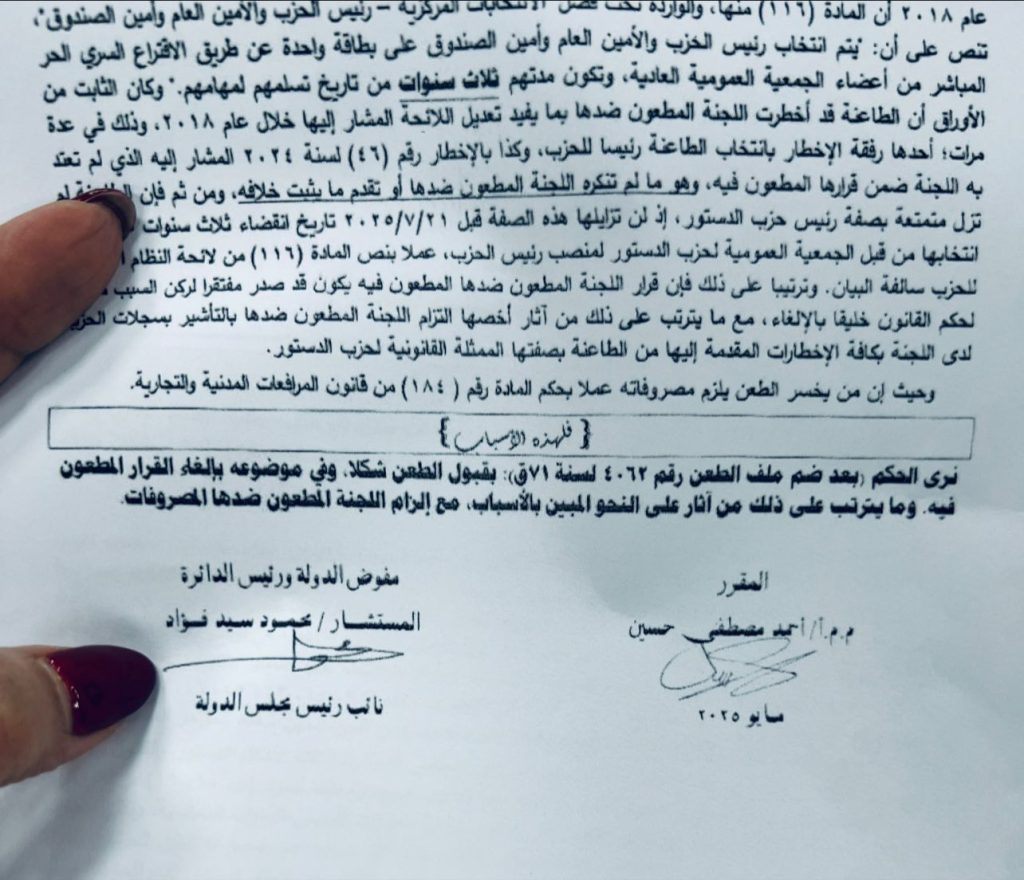 عام ٢٠١٨ أن المادة (١١٦) منها، والواردة تحت فصل الانتخابات المركزية – رئيس الحزب والأمين العام وأمين الصندوق"،
تنص على أن: "يتم انتخاب رئيس الحزب والأمين العام وأمين الصندوق على بطاقة واحدة عن طريق الاقتراع السري الحر
المباشر من أعضاء الجمعية العمومية العادية، وتكون مدتهم ثلاث سنوات من تاريخ تسلمهم لمهامهم." وكان الثابت من
الأوراق أن الطاعنة قد أخطرت اللجنة المطعون ضدها بما يفيد تعديل اللائحة المشار إليها خلال عام ٢٠١٨، وذلك في عدة
مرات؛ أحدها رفقة الإخطار بانتخاب الطاعنة رئيسا للحزب، وكذا بالإخطار رقم (٤٦) لسنة ٢٠٢٤ المشار إليه الذي لم تعتد
به اللجنة ضمن قرارها المطعون فيه، وهو ما لم تنكره اللجنة المطعون ضدها أو تقدم ما يثبت خلافه، ومن ثم فإن لم
تزل متمتعة بصفة رئيس حزب الدستور، إذ لن تزايلها هذه الصفة قبل ٢٠٢٥/٧/٢١ تاريخ انقضاء ثلاث سنوات
انتخابها من قبل الجمعية العمومية لحزب الدستور لمنصب رئيس الحزب، عملا بنص المادة (١١٦) من لائحة النظام
للحزب سالفة البيان. وترتيبا على ذلك فإن قرار اللجنة المطعون ضدها المطعون فيه يكون قد صدر مفتقرا لركن السبب
لحكم القانون خليقا بالإلغاء، مع ما يترتب على ذلك من آثار أخصها التزام اللجنة المطعون ضدها بالتأشير بسجلات
لدى اللجنة بكافة الإخطارات المقدمة إليها من الطاعنة بصفتها الممثلة القانونية لحزب الدستور.
وحيث إن من يخسر الطعن يلزم مصروفاته عملا بحكم المادة رقم (١٨٤) من قانون المرافعات المدنية والتجارية.
{ فلهذه الأسباب }
نرى الحكم (بعد ضم ملف الطعن رقم ٤٠٦٢ لسنة ٧١ق): بقبول الطعن شكلا، وفي موضوعه بإلغاء القرار المطعون
فيه، وما يترتب على ذلك من آثار على النحو المبين بالأسباب، مع إلزام اللجنة المطعون ضدها المصروفات.
المقرر
م.م.أ/ أحمد مصطفى حسين
مايو ٢٠٢٥
مفوض الدولة ورئيس الدائرة
المستشار / محمود سيد فؤاد
نائب رئيس مجلس الدولة